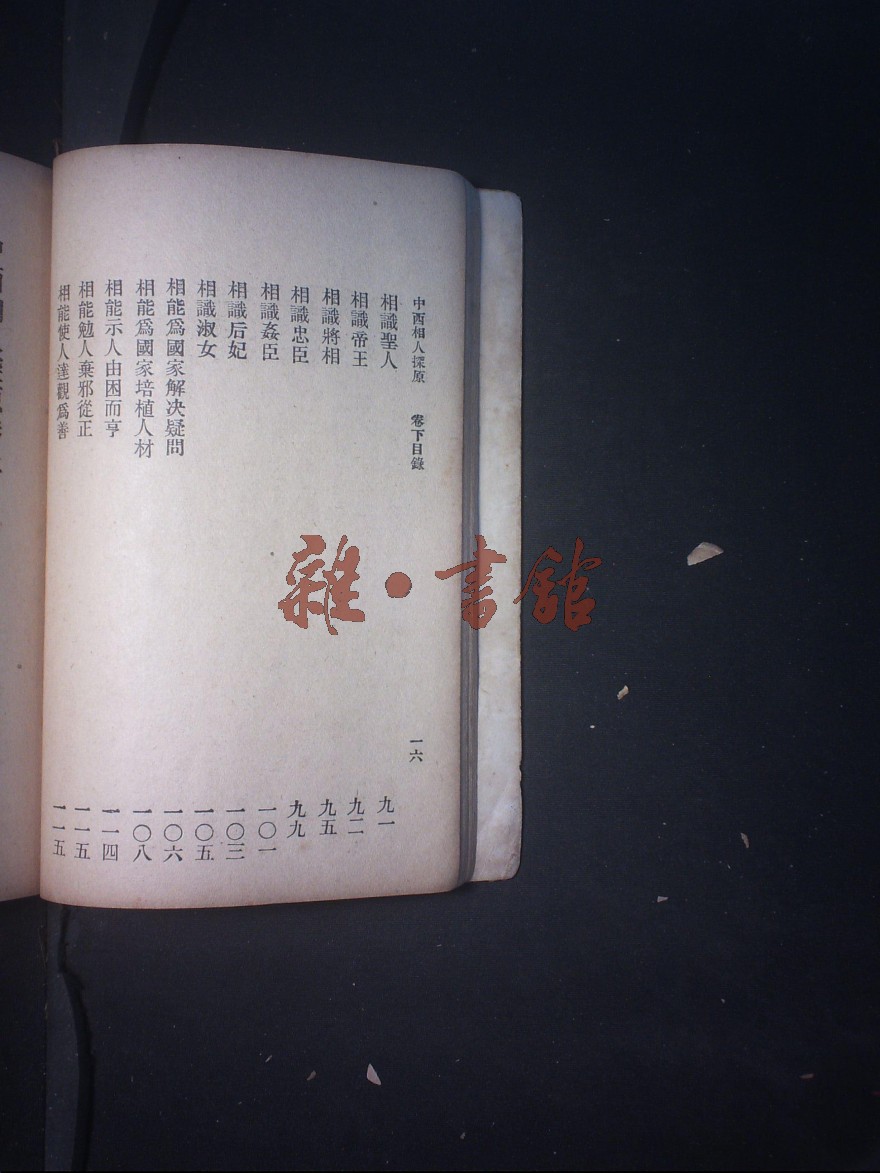 中西相人探原 卷下目錄 一六
相識聖人 九一
相識帝王 九二
相識將相 九五
相識忠臣 九九
相識姦臣 一〇一
相識后妃 一〇三
相識淑女 一〇五
相能為國家解决疑問 一〇六
相能為國家培植人材 一〇八
相能示人由困而亨 一一四
相能勉人棄邪從正 一一五
相能使人達觀為善 一一五
雜·書館